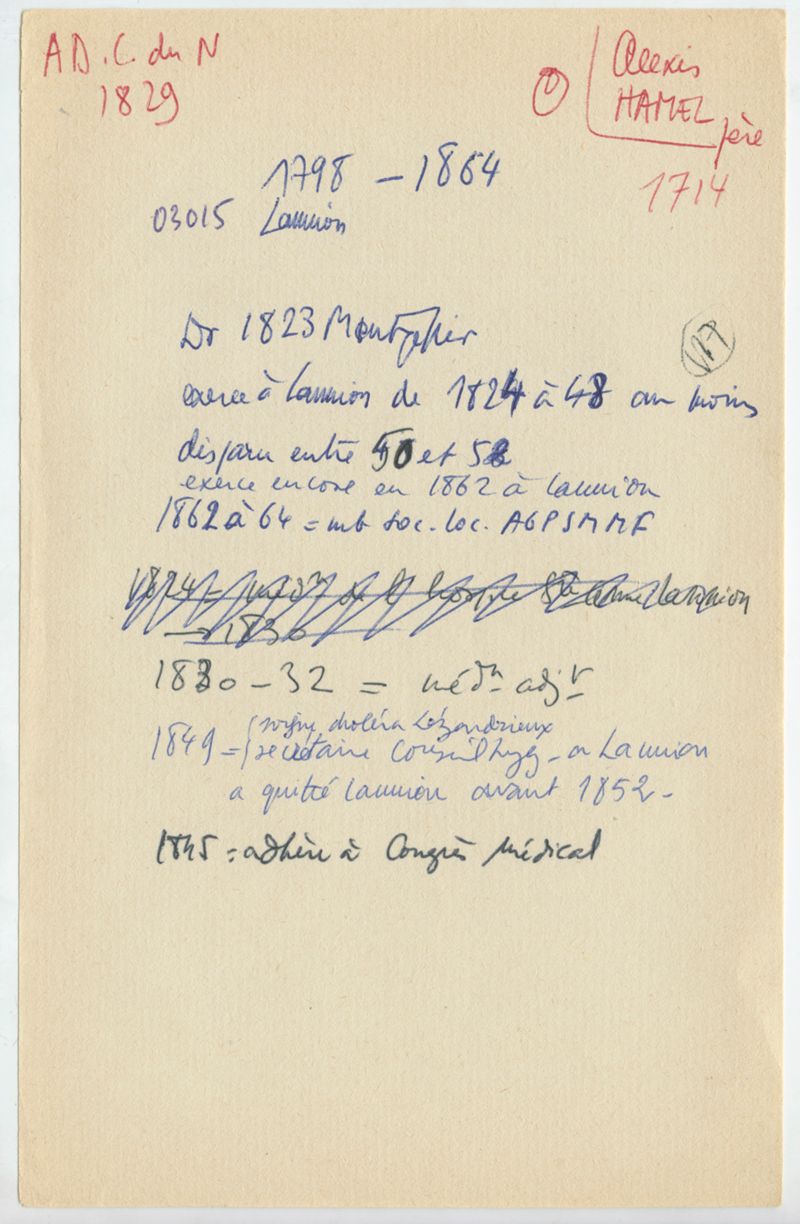 AD. C. du N
1829
Alexis
HAMEL
père
1714
1798 - 1864
03015 Lannion
Dr 1823 Montpellier
exerce à Lannion de 1824 à 48 au moins
disparu entre 50 et 52
exerce encore en 1862 à Lannion
1862 à 64 = mb soc. loc. AGPSMMF
1824 = méd de l'hospice Ste Anne Lannion
→ 1830
1830 - 32 = médn adjt
1849 = (soigne choléra Lézardrieux
(secrétaire Conseil hyg - a Lannion
a quitté Lannion avant 1852 -
1845 = adhère à Congrès Médical